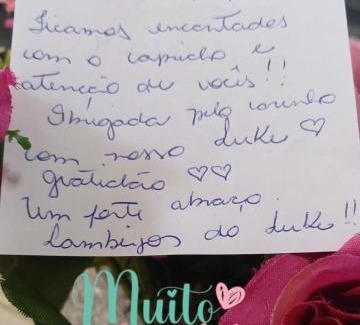 Ficamos encantades
com o capricho e
atenção de vocês!!
Obrigada pelo carinho
com nosso Luke ♡
gratidão ♡♡
Um forte abraço.
Lambeijos do Luke!!
Muito